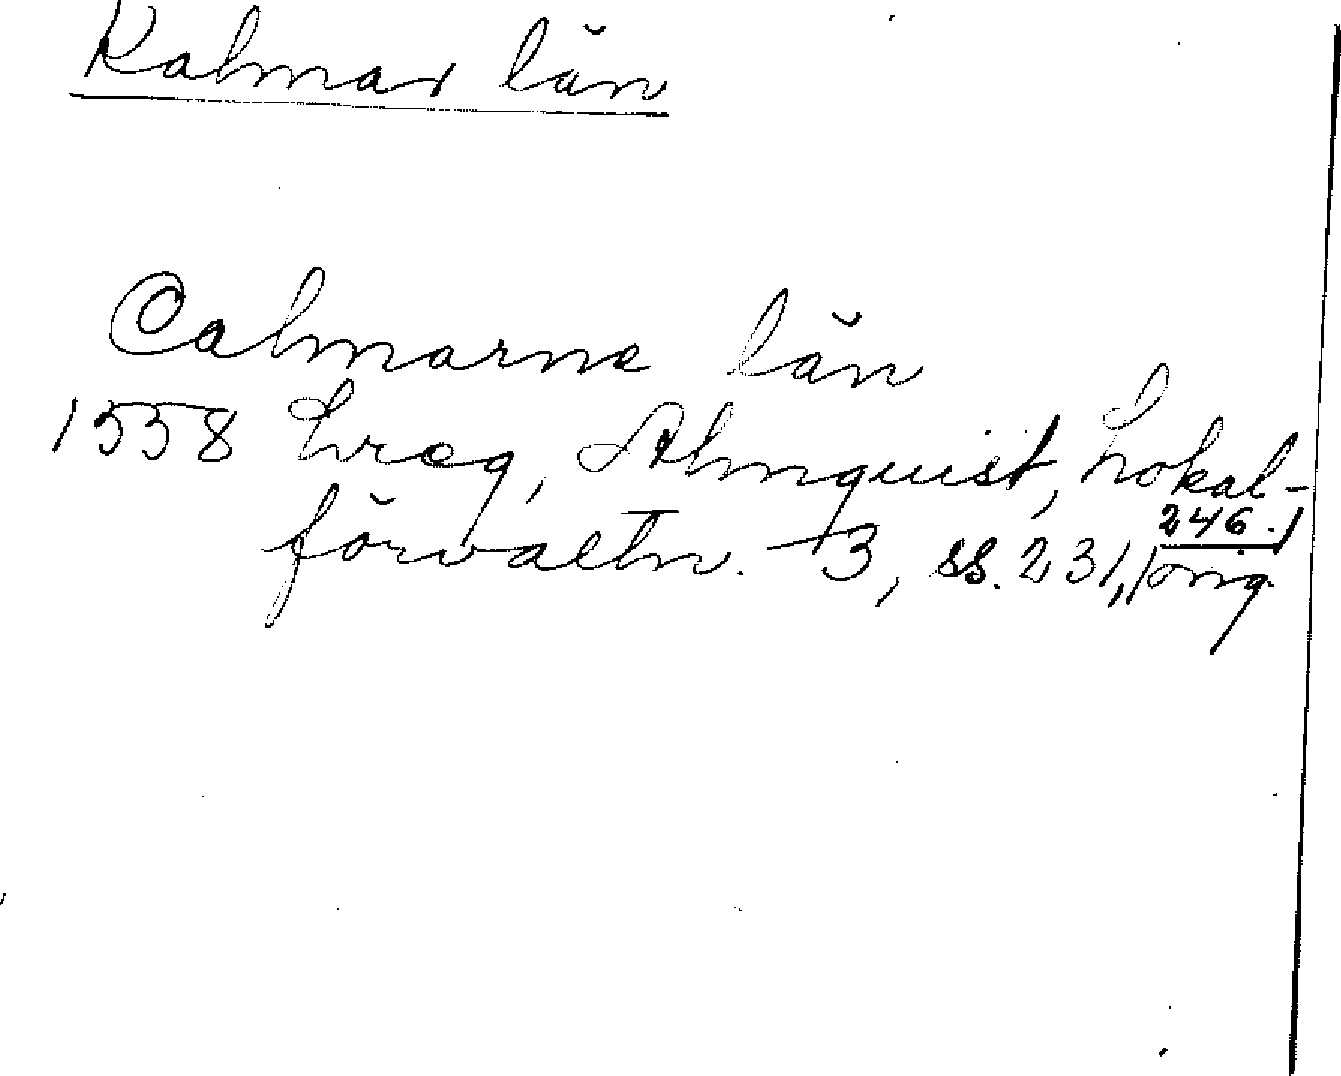 Kalmar län
Calmarna län
1558 Lreg, Almquist, Lokal-
förvaltn. 3, ss. 231, 246. orig.